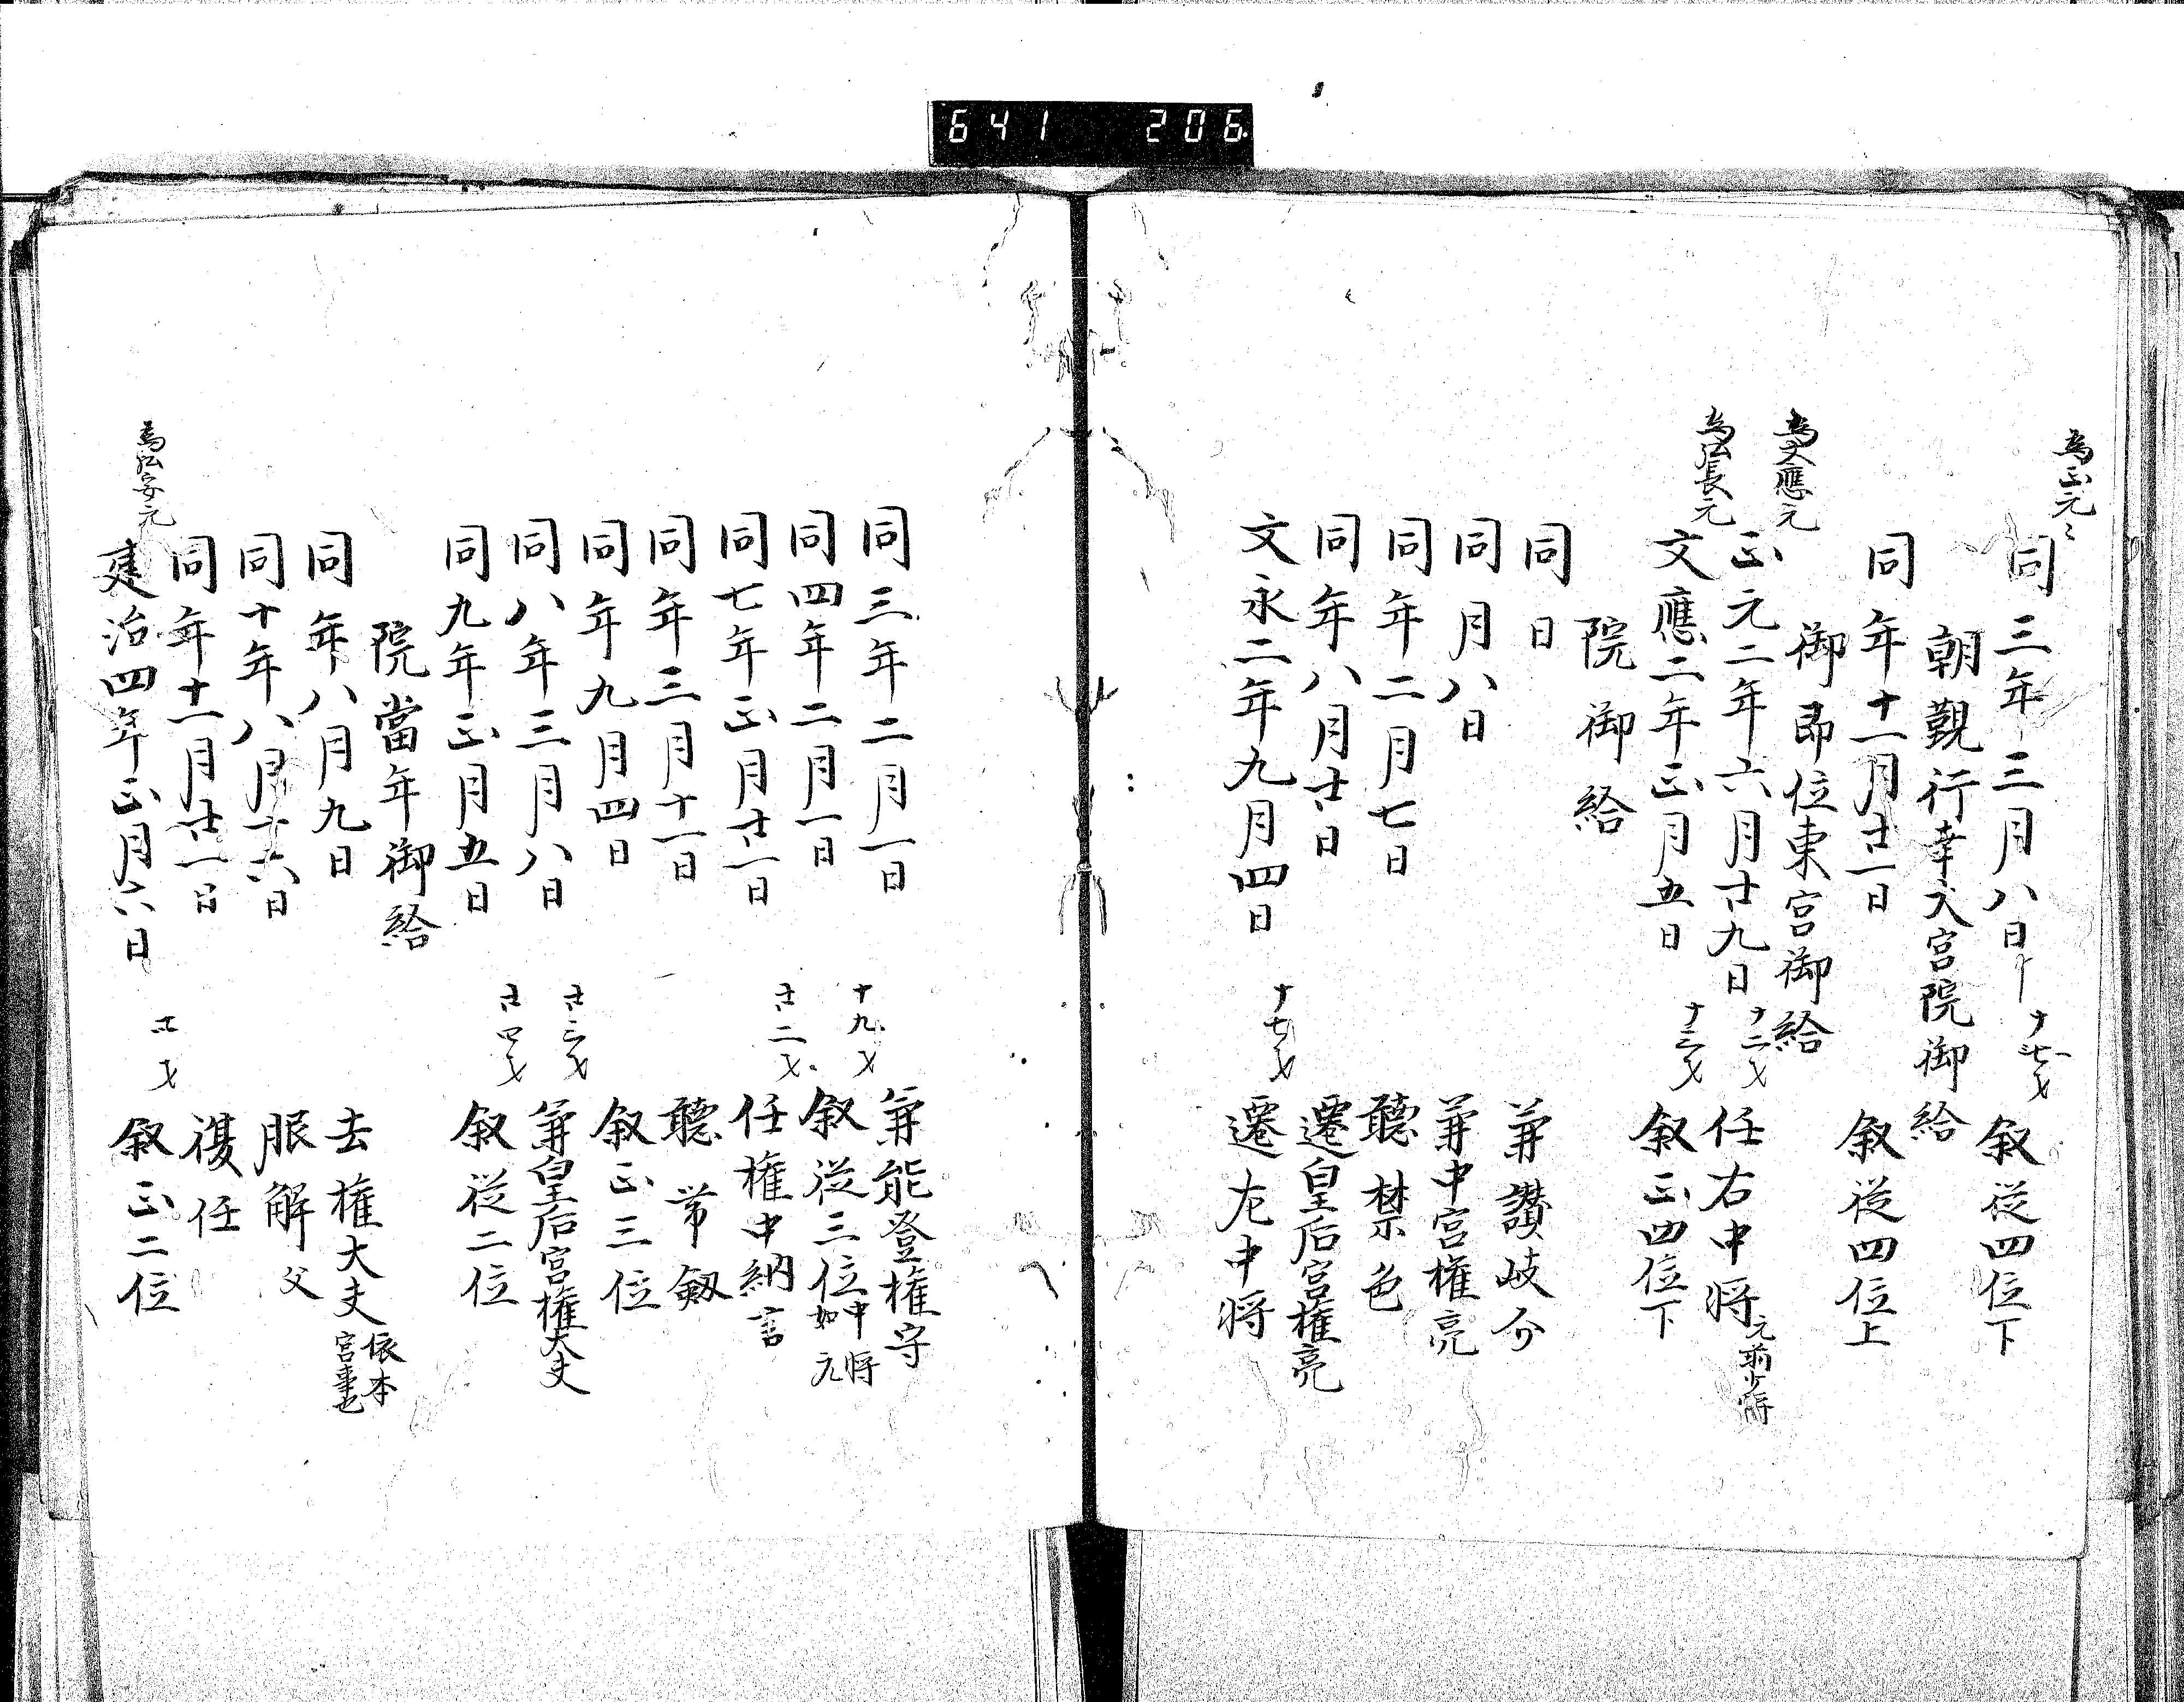 641 206
為正元々
同三年三月八日 十一才 叙従四位下
朝覲行幸大宮院御給
同年十一月廿一日 叙従四位上
御即位東宮御給
為文應元
正元二年六月廿九日 十二才 任右中将 元前少将
為弘長元
文應二年正月五日 十三才 叙正四位下
院御給
同日 兼讃岐介
同月八日 兼中宮権亮
同年二月七日 聴禁色
同年八月廿日 遷皇后宮権亮
文永二年九月四日 十七才 遷左中将
同三年二月一日 兼能登権守
同四年二月一日 十九才 叙従三位 中将如元
同七年正月廿一日 廿二才 任権中納言
同年三月十一日 聴帯劔
同年九月四日 叙正三位
同八年三月八日 廿三才 兼皇后宮権大夫
同九年正月五日 廿四才 叙従二位
院當年御給
同年八月九日 去権大夫 依本宮事也
同十年八月十六日 服解 父
同年十一月廿一日 復任
為弘安元
建治四年正月六日 叙正二位